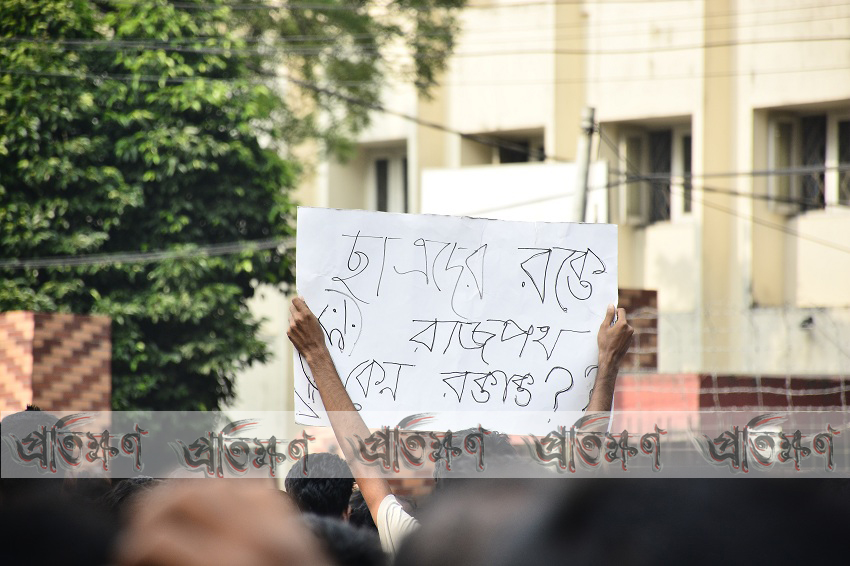 ছাত্রদের রক্তে
রাজপথ
কেন রক্তাক্ত??
প্রতিক্ষণ প্রতিক্ষণ প্রতিক্ষণ প্রতিক্ষণ প্রতিক্ষণ